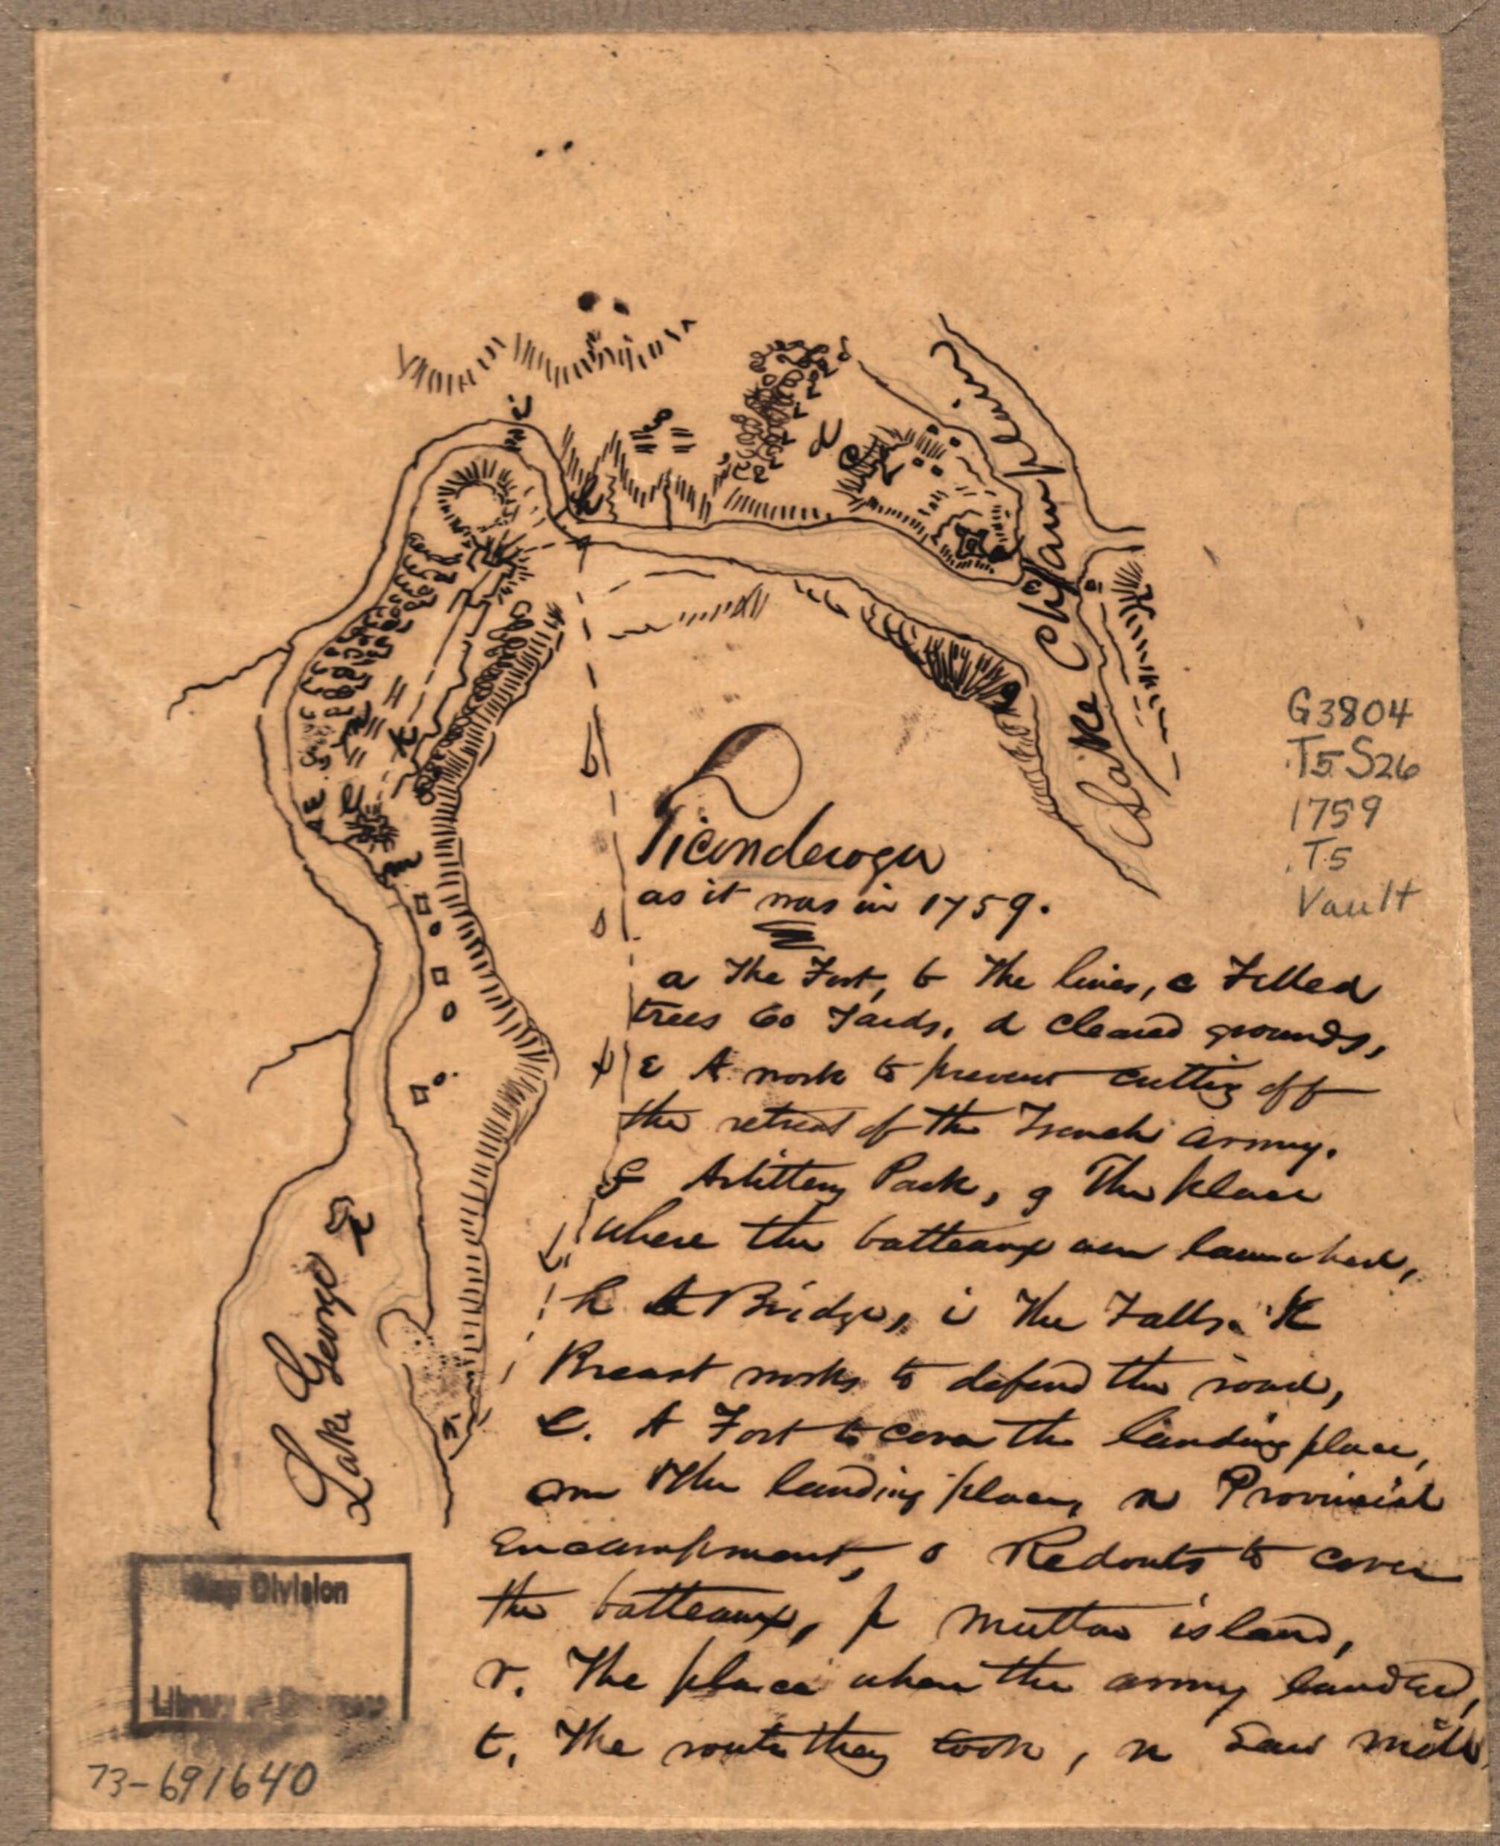 Lake Champlain
Ticonderoga
as it was in 1759.
a The Fort, b The lines, c Felled
trees 60 Yards, d Cleared grounds,
E A work to prevent cutting off
the retreat of the French army.
Artillery Park, g The place
where the batteaux were launched,
h A Bridge, i The Falls. K
Breast works to defend the road,
l. A Fort to cover the landing place,
m The landing place, n Provincial
Encampment, o Redouts to cover
the batteaux, p Mutton island,
r. The place where the army landed,
t. The route they took, n Saw mills
Lake George
G3804
.T5S26
1759
.T5
Vault
Map Division
Library of Congress
73-691640